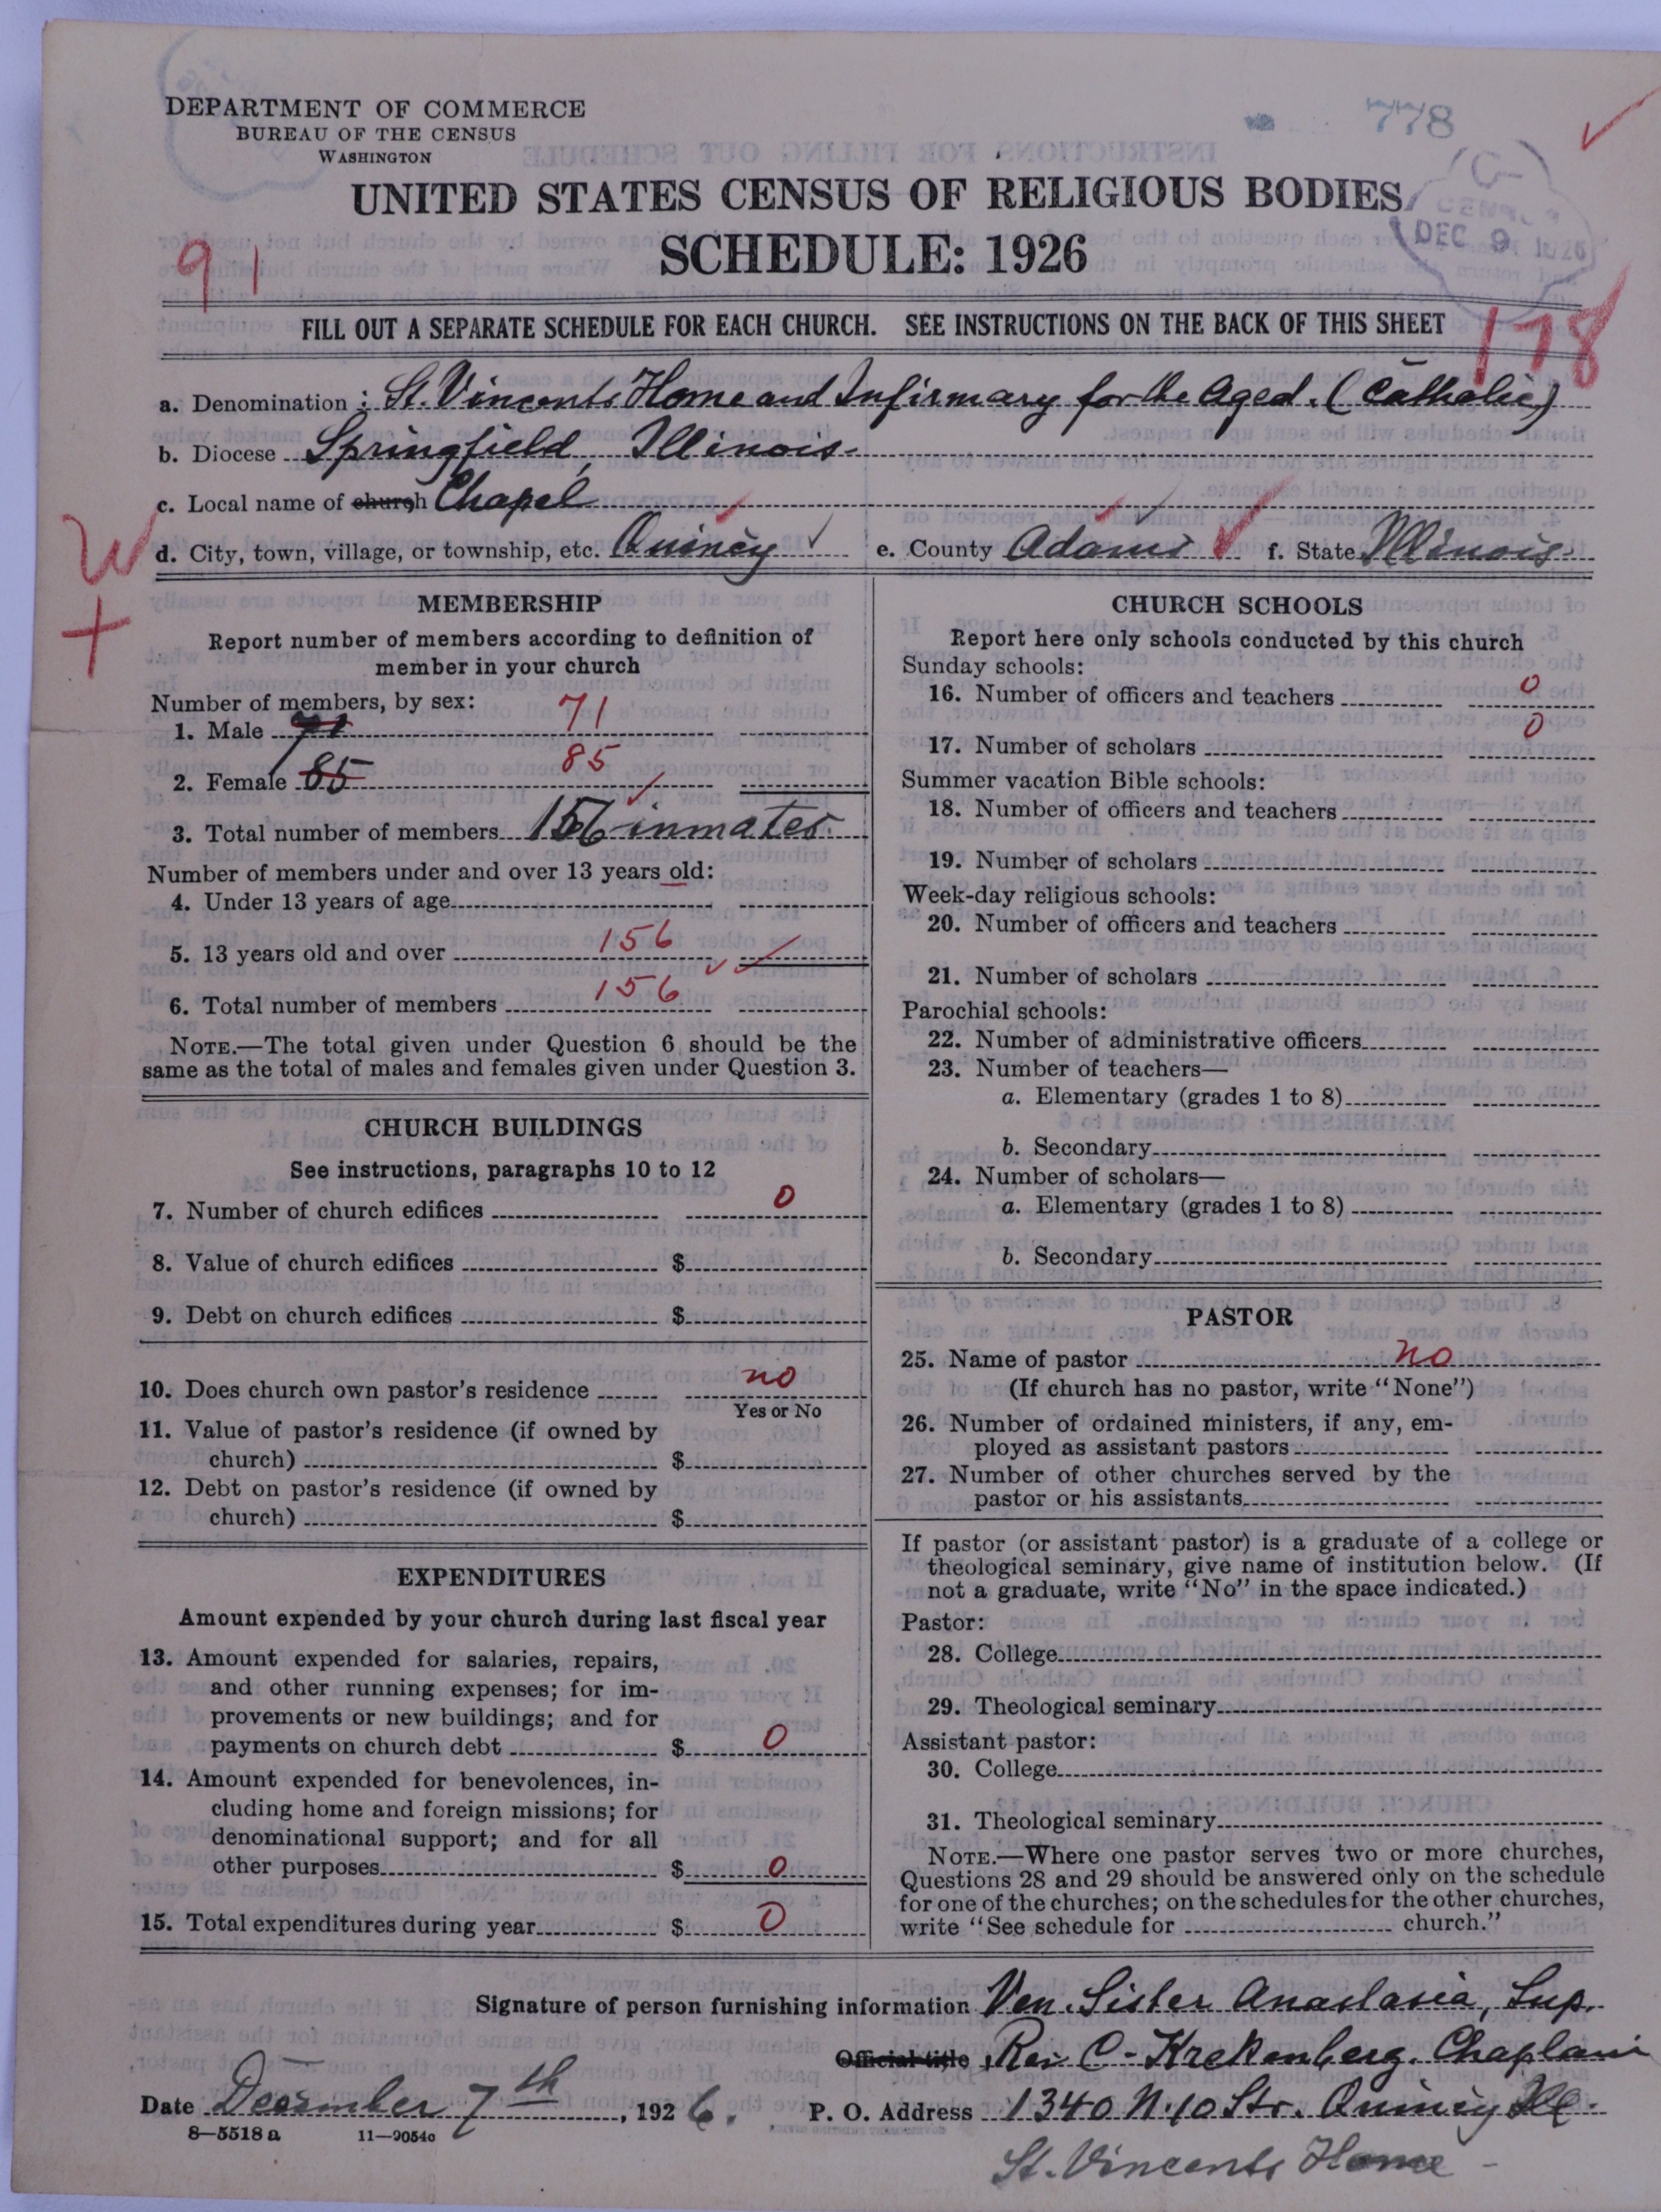 DEPARTMENT OF COMMERCE
BUREAU OF THE CENSUS
WASHINGTON
778
UNITED STATES CENSUS OF RELIGIOUS BODIES
SCHEDULE: 1926
CENSUS
DEC 9 1926
91
178
FILL OUT A SEPARATE SCHEDULE FOR EACH CHURCH. SEE INSTRUCTIONS ON THE BACK OF THIS SHEET
a. Denomination : St. Vincents Home and Infirmary for the Aged. (Catholic)
b. Diocese Springfield, Illinois.
c. Local name of church Chapel
d. City, town, village, or township, etc. Quincy e. County Adams f. State Illinois.
W
+
MEMBERSHIP
Report number of members according to definition of
member in your church
Number of members, by sex:
1. Male 71 71
2. Female 85 85
3. Total number of members 156 inmates.
Number of members under and over 13 years old:
4. Under 13 years of age
5. 13 years old and over 156
6. Total number of members 156
NOTE.—The total given under Question 6 should be the
same as the total of males and females given under Question 3.
CHURCH BUILDINGS
See instructions, paragraphs 10 to 12
7. Number of church edifices 0
8. Value of church edifices $
9. Debt on church edifices $
10. Does church own pastor's residence no
Yes or No
11. Value of pastor's residence (if owned by
church) $
12. Debt on pastor's residence (if owned by
church) $
EXPENDITURES
Amount expended by your church during last fiscal year
13. Amount expended for salaries, repairs,
and other running expenses; for im-
provements or new buildings; and for
payments on church debt $ 0
14. Amount expended for benevolences, in-
cluding home and foreign missions; for
denominational support; and for all
other purposes $ 0
15. Total expenditures during year $ 0
CHURCH SCHOOLS
Report here only schools conducted by this church
Sunday schools:
16. Number of officers and teachers 0
17. Number of scholars 0
Summer vacation Bible schools:
18. Number of officers and teachers
19. Number of scholars
Week-day religious schools:
20. Number of officers and teachers
21. Number of scholars
Parochial schools:
22. Number of administrative officers
23. Number of teachers—
a. Elementary (grades 1 to 8)
b. Secondary
24. Number of scholars—
a. Elementary (grades 1 to 8)
b. Secondary
PASTOR
25. Name of pastor no
(If church has no pastor, write "None")
26. Number of ordained ministers, if any, em-
ployed as assistant pastors
27. Number of other churches served by the
pastor or his assistants
If pastor (or assistant pastor) is a graduate of a college or
theological seminary, give name of institution below. (If
not a graduate, write "No" in the space indicated.)
Pastor:
28. College
29. Theological seminary
Assistant pastor:
30. College
31. Theological seminary
NOTE.—Where one pastor serves two or more churches,
Questions 28 and 29 should be answered only on the schedule
for one of the churches; on the schedules for the other churches,
write "See schedule for church."
Signature of person furnishing information Ven. Sister Anastasia, Sup.
Official title Rev. C. Krekenberg. Chaplain
Date December 7th, 1926. P. O. Address 1340 N. 10 Str. Quincy Ill.
8—5518a 11—9054c
St. Vincents Home